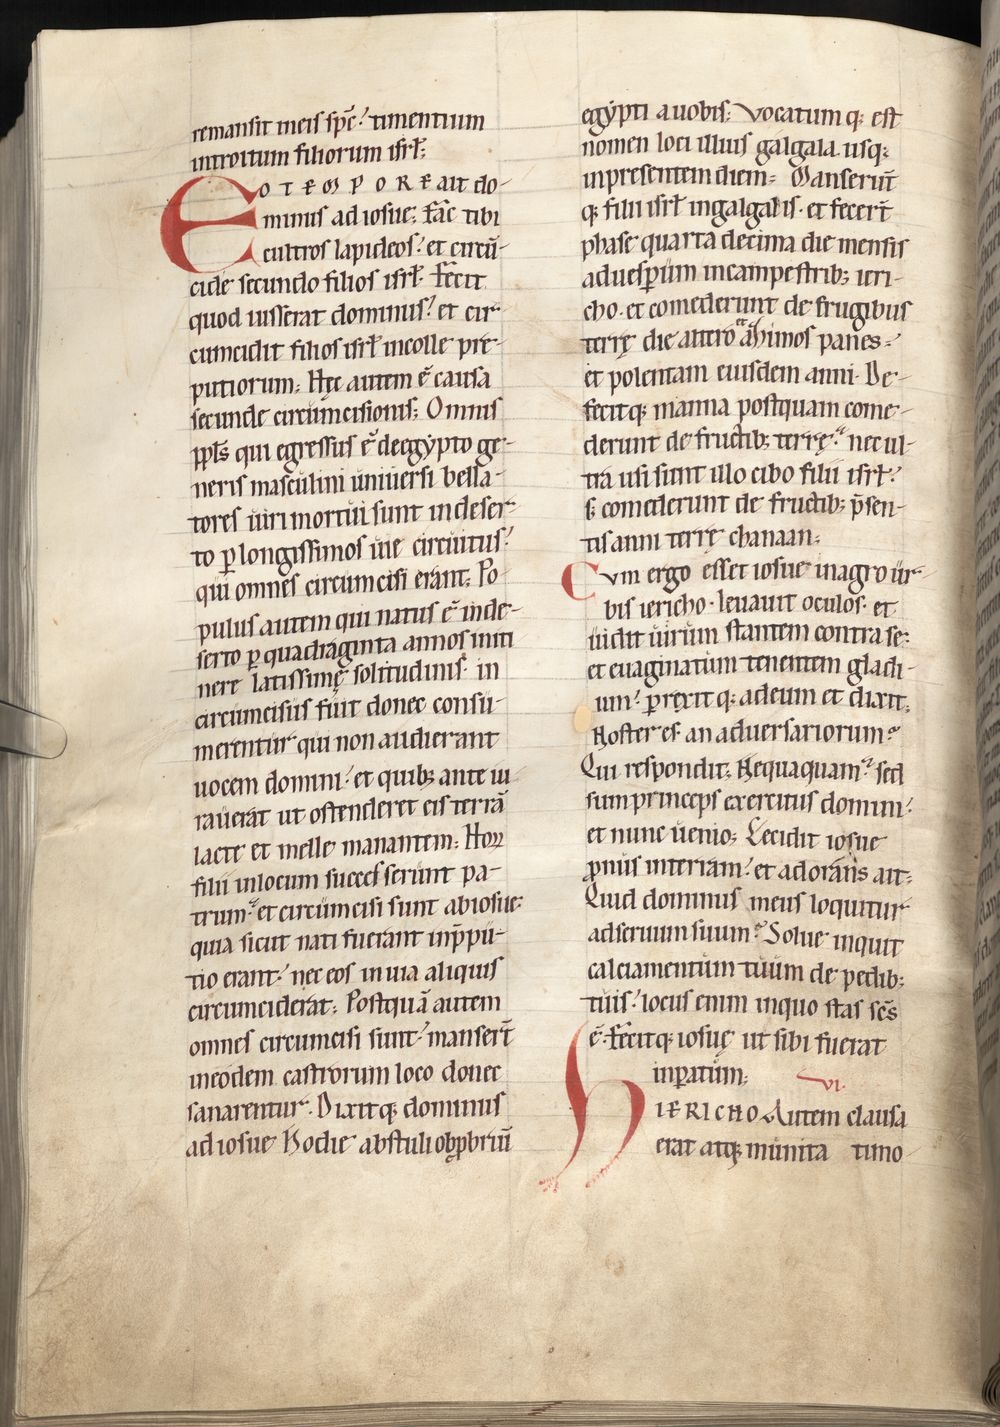 remansit in eis sp̄c᷑ timentium
introitum filiorum isrł;
EO TEMPORE ait do-
minus ad iosue; Fac tibi
cultros lapideos᷑ et circū-
cide secundo filios isrł. Fecit
quod iusserat dominus᷑ et cir-
cumcidit filios isrł in colle pre-
putiorum; Hęc autem ē causa
secunde circumcisionis; Omnis
ppłs qui egressus ē de egypto ge-
neris masculini uniuersi bella-
tores uiri mortui sunt in deser-
to ꝑ longissimos uie circuitus᷑
qui omnes circumcisi erant; Po-
pulus autem qui natus ē in de-
serto ꝑ quadraginta annos itine
nere latissimę solitudinis. in
circumcisus fuit donec consu-
merentur qui non audierant
uocem domini᷑ et quibꝫ ante iu-
rauerat ut ostenderet eis terrā
lacte et melle manantem; Hoꝝ
filii in locum successerunt pa-
trum᷑ et circumcisi sunt ab iosue;
quia sicut nati fuerant in p̄pu-
tio erant᷑ nec eos in uia aliquis
circumciderat; Postquā autem
omnes circumcisi sunt᷑ manser̄t
in eodem castrorum loco donec
sanarentur. Dixitqꝫ dominus
ad iosue Hodie abstuli obꝓbriū
egypti a uobis; Vocatumqꝫ est
nomen loci illius galgala. usqꝫ
in presentem diem; Manserun̄t
qꝫ filii isrł in galgalis. et fecer̄t
phase quarta decima die mensis
ad uesꝑum in campestribꝫ ieri-
cho. et comederunt de frugibus
terrę die altero azimos panes᷑
et polentam eiusdem anni. De-
fecitqꝫ manna postquam come-
derunt de fructibꝫ terrę᷑ nec ul-
tra usi sunt illo cibo filii isrł᷑
s; comederunt de fructibꝫ p̄sen-
tis anni terrę chanaan;
Cum ergo esset iosue in agro ur-
bis iericho. leuauit oculos. et
uidit uirum stantem contra se;
et euaginatum tenentem gladi-
um᷑ ꝑrexitqꝫ ad eum et dixit;
Noster es. an adversariorum?
Qui respondit; Nequaquam᷑ sed
sum princeps exercitus domini᷑
et nunc uenio; Cecidit iosue
ꝓnus in terram᷑ et adorans ait;
Quid dominus meus loquitur
ad seruum suum? Solue inquit
calciamentum tuum de pedibꝫ
tuis᷑ locus enim in quo stas sc̄s
ē. Fecitqꝫ iosuę ut sibi fuerat
inꝑatum; VI.
HIERICHO Autem clausa
erat atqꝫ munita timo-